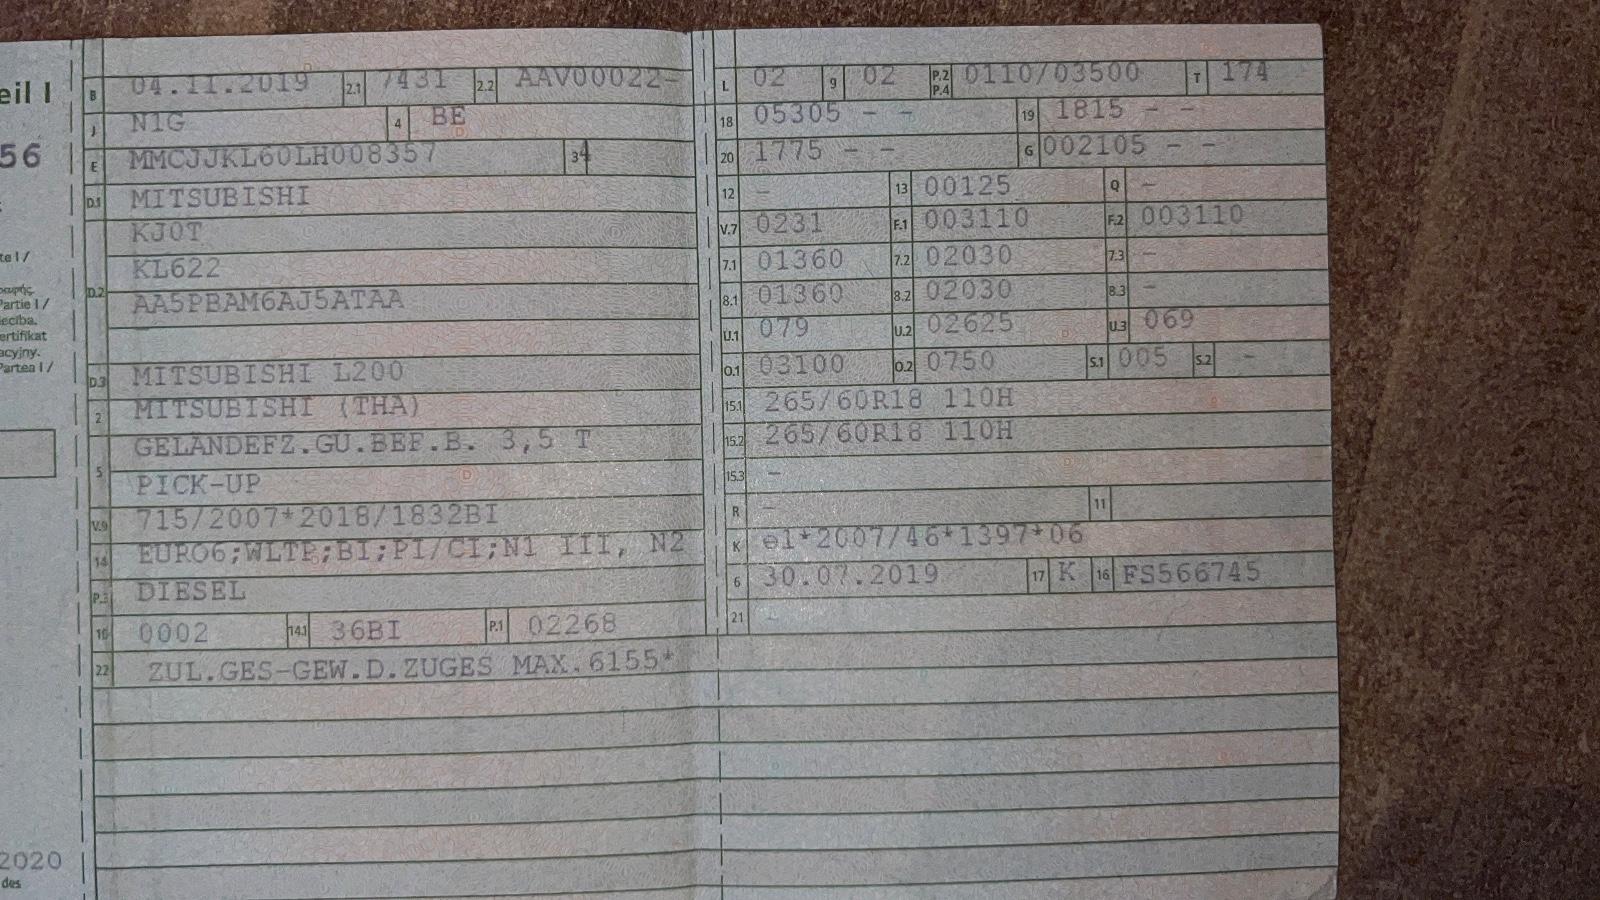 eil I
56
te I /
Partie I /
eciba.
ertifikat
acyjny.
Partea I /
2020
des
B 04.11.2019 2.1 7431 2.2 AAV00022-
J N1G 4 BE
E MMCJJKL60LH008357 3 4
D.1 MITSUBISHI
KJ0T
KL622
D.2 AA5PBAM6AJ5ATAA
D.3 MITSUBISHI L200
2 MITSUBISHI (THA)
GELANDEFZ.GU.BEF.B. 3,5 T
5 PICK-UP
V.9 715/2007*2018/1832BI
14 EURO6;WLTP;BI;PI/CI;N1 III, N2
P.3 DIESEL
10 0002 14.1 36BI P.1 02268
22 ZUL.GES-GEW.D.ZUGES MAX.6155*
L 02 9 02 P.2 P.4 0110/03500 T 174
18 05305 - - 19 1815 - -
20 1775 - - G 002105 - -
12 - 13 00125 Q -
V.7 0231 F.1 003110 F.2 003110
7.1 01360 7.2 02030 7.3 -
8.1 01360 8.2 02030 8.3 -
U.1 079 U.2 02625 U.3 069
O.1 03100 O.2 0750 S.1 005 S.2 -
15.1 265/60R18 110H
15.2 265/60R18 110H
15.3 -
R - 11
K e1*2007/46*1397*06
6 30.07.2019 17 K 16 FS566745
21 -